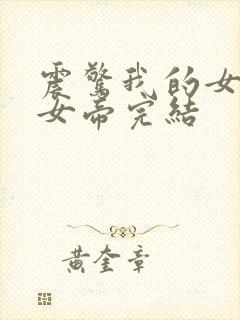 震驚我的女
女帝完結
黃奎章